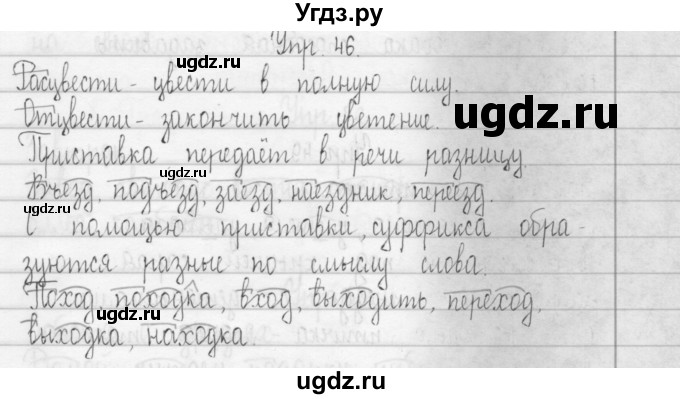 Угдз.ру
Упр. 46.
Расцвести - цвести в полную силу.
Отцвести - закончить цветение.
Приставка передаёт в речи разницу.
Въезд, подъезд, заезд, наездник, переезд.
С помощью приставки, суффикса обра-
зуются разные по смыслу слова.
Поход, походка, вход, выходить, переход,
выходка, находка.
ugdz.ru
ugdz.ru
ugdz.ru
ugdz.ru
ugdz.ru
ugdz.ru